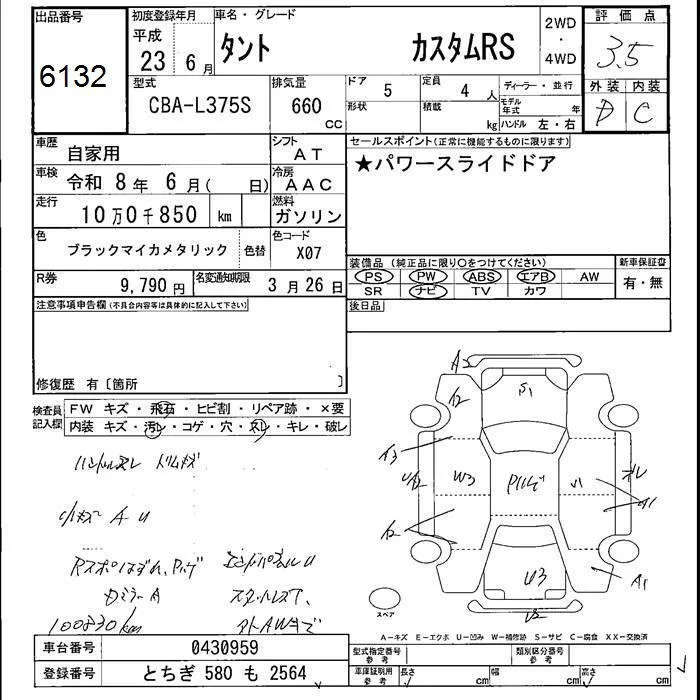 出品番号 初度登録年月 車名・グレード 2WD・4WD 評価点
6132 平成 23 6月 タント カスタムRS 3.5
型式 排気量 ドア 5 定員 4人 ディーラー・並行 外装 内装
CBA-L375S 660 CC 形状 積載 kg モデル年式 年 ハンドル 左・右 D C
車歴 自家用 シフト AT セールスポイント(正常に機能するものに限ります)
車検 令和 8年 6月( 日) 冷房 AAC ★パワースライドドア
走行 10万0千850 km 燃料 ガソリン
色 ブラックマイカメタリック 色替 色コード X07
装備品 (純正品に限り○をつけてください) 新車保証書
PS PW ABS エアB AW 有・無
R券 9,790円 名変通知期限 3月26日 SR ナビ TV カワ
注意事項申告欄(不具合内容等は具体的に記入して下さい) 後日品
修復歴 有〔箇所 〕
検査員記入欄 FW キズ・飛石・ヒビ割・リペア跡・×要
内装 キズ・汚レ・コゲ・穴・スレ・キレ・破レ
ハンドルスレ ドリムキズ
小キズ A U
Dミラー A
100830km
A2
S1
A2
A3
W3
A2
U3
A1
U2
スペア
A-キズ E-エクボ U-凹み W-補修跡 S-サビ C-腐食 XX-交換済
車台番号 0430959 型式指定番号 参考 類別区分番号 参考
登録番号 とちぎ 580 も 2564 車庫証明用 参考 長さ cm 幅 cm 高さ cm